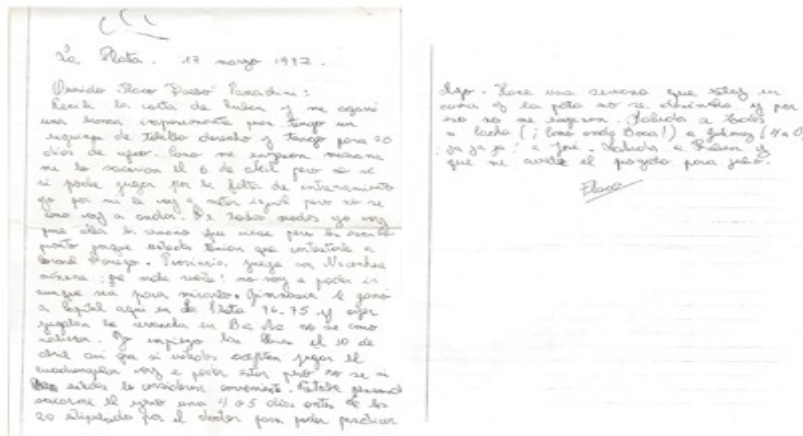 La Plata. 17 marzo 1992.
Querido Flaco
Recibí la carta de Ruben y me agarró
una bronca impresionante pues tengo un
esguince de tobillo derecho y tengo para 20
días de yeso. Como me enyesan mañana
me lo sacarían el 6 de abril pero no sé
si podré jugar por la falta de entrenamiento
yo por mi lo voy a estar igual pero no sé
como voy a andar. De todos modos yo voy
para allá la semana que viene pero les escribo
pronto porque ustedes tienen que contestarle a
Coronel Dorrego. Provincia juega con Necochea
mañana no voy a poder ir
aunque sea para mirarlo. Gimnasia le ganó
a Capital aquí en La Plata 76-75 y ayer
jugaban la revancha en Bs As no se como
salieron. Yo empiezo las clases el 10 de
abril así que si ustedes aceptan jugar el
cuadrangular voy a poder estar pero no se si
ustedes lo consideran conveniente.
sacarme el yeso unos 4 o 5 días antes de los
20 estipulados por el doctor para poder practicar
algo. Hace una semana que estoy en
cama y la pata no se deshincha y por
eso no me enyesan. Saludos a todos
a Lacha (¡Como anda Boca!) a (4 a 0)
¡ja ja ja! a José. Saludos a Ruben y
que me el para julio.
Flaco